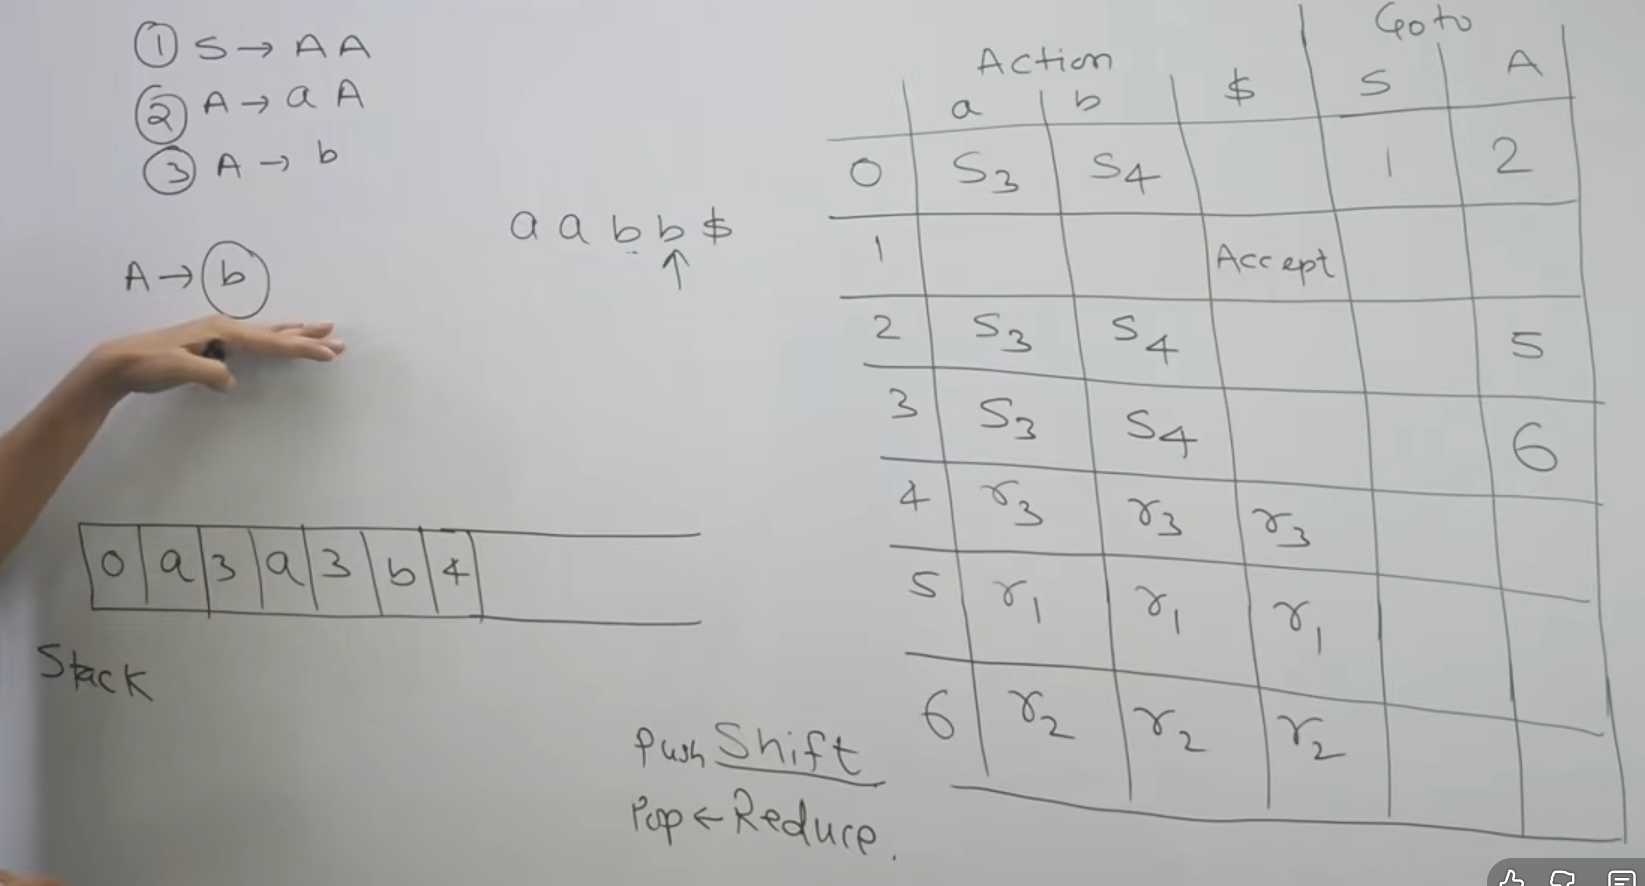 ① S → A A
② A → a A
③ A → b
A → b
a a b b $
↑
0 a 3 a 3 b 4
Stack
Push Shift
Pop ← Reduce.
Action Goto
a b $ S A
0 S3 S4 1 2
1 Accept
2 S3 S4 5
3 S3 S4 6
4 r3 r3 r3
5 r1 r1 r1
6 r2 r2 r2